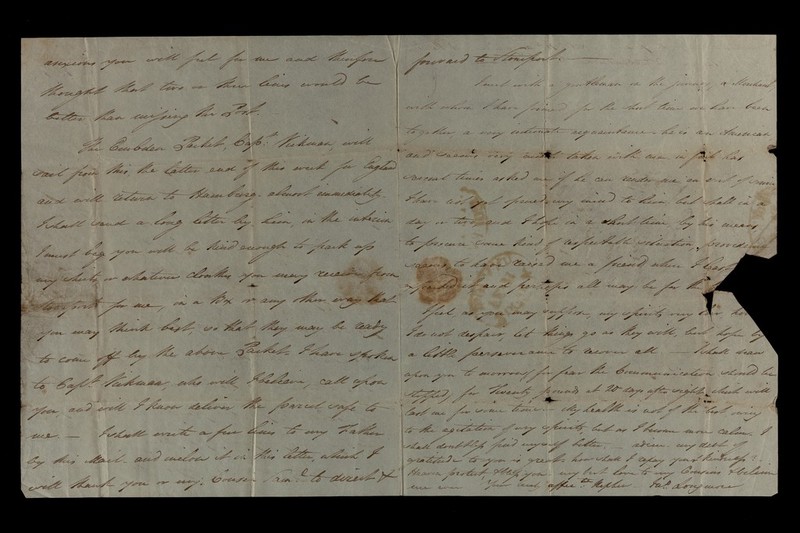 anxious you will feel for me and therefore
thought that two or three lines would be
better than missing the Post.
The Camden Packet, Capt. Hickman, will
sail from this, the latter end of this week for England
and will return to Hamburg almost immediately.
I shall send a long letter by him, in the interim
I must beg you will be kind enough to pack up
my shirts or whatever cloathes you may receive from
for me, in a Box or any other way that
you may think best, so that they may be ready
to come off by the above Packet. I have spoken
to Capt. Hickman, who will I believe, call upon
you, and will I know deliver the parcel safe to
me. — I shall write a few lines to my Father
by this Mail and inclose it in this letter, which I
will thank you or my Cousin to direct &
forward to
I met with a gentleman on the journey, a Merchant
with whom I have formed for the short time we have been
together a very intimate acquaintance. he is an American
and seems very much taken with me in fact has
several times asked me if he can render me any
I have not yet opened my mind to him but shall in a
day or two, and I hope in a short time by his means
to procure some kind of respectable situation, providence
seems to have raised me a friend when I least
expected it and perhaps all may be for the
I feel as you may suppose my spirits very
I do not despair, let things go as they will, but hope by
a little perseverance to recover all — I shall draw
upon you to morrow for fear the Communication should be
stopped, for Twenty pounds at 20 days after sight, which will
last me for some time — My health is not of the best owing
to the agitation of my spirits, but as I become more calm I
shall doubtless find myself better
gratitude to you is great, how shall I repay your kindness?
you my best love to my Cousins & believe
me ever Your Nephew